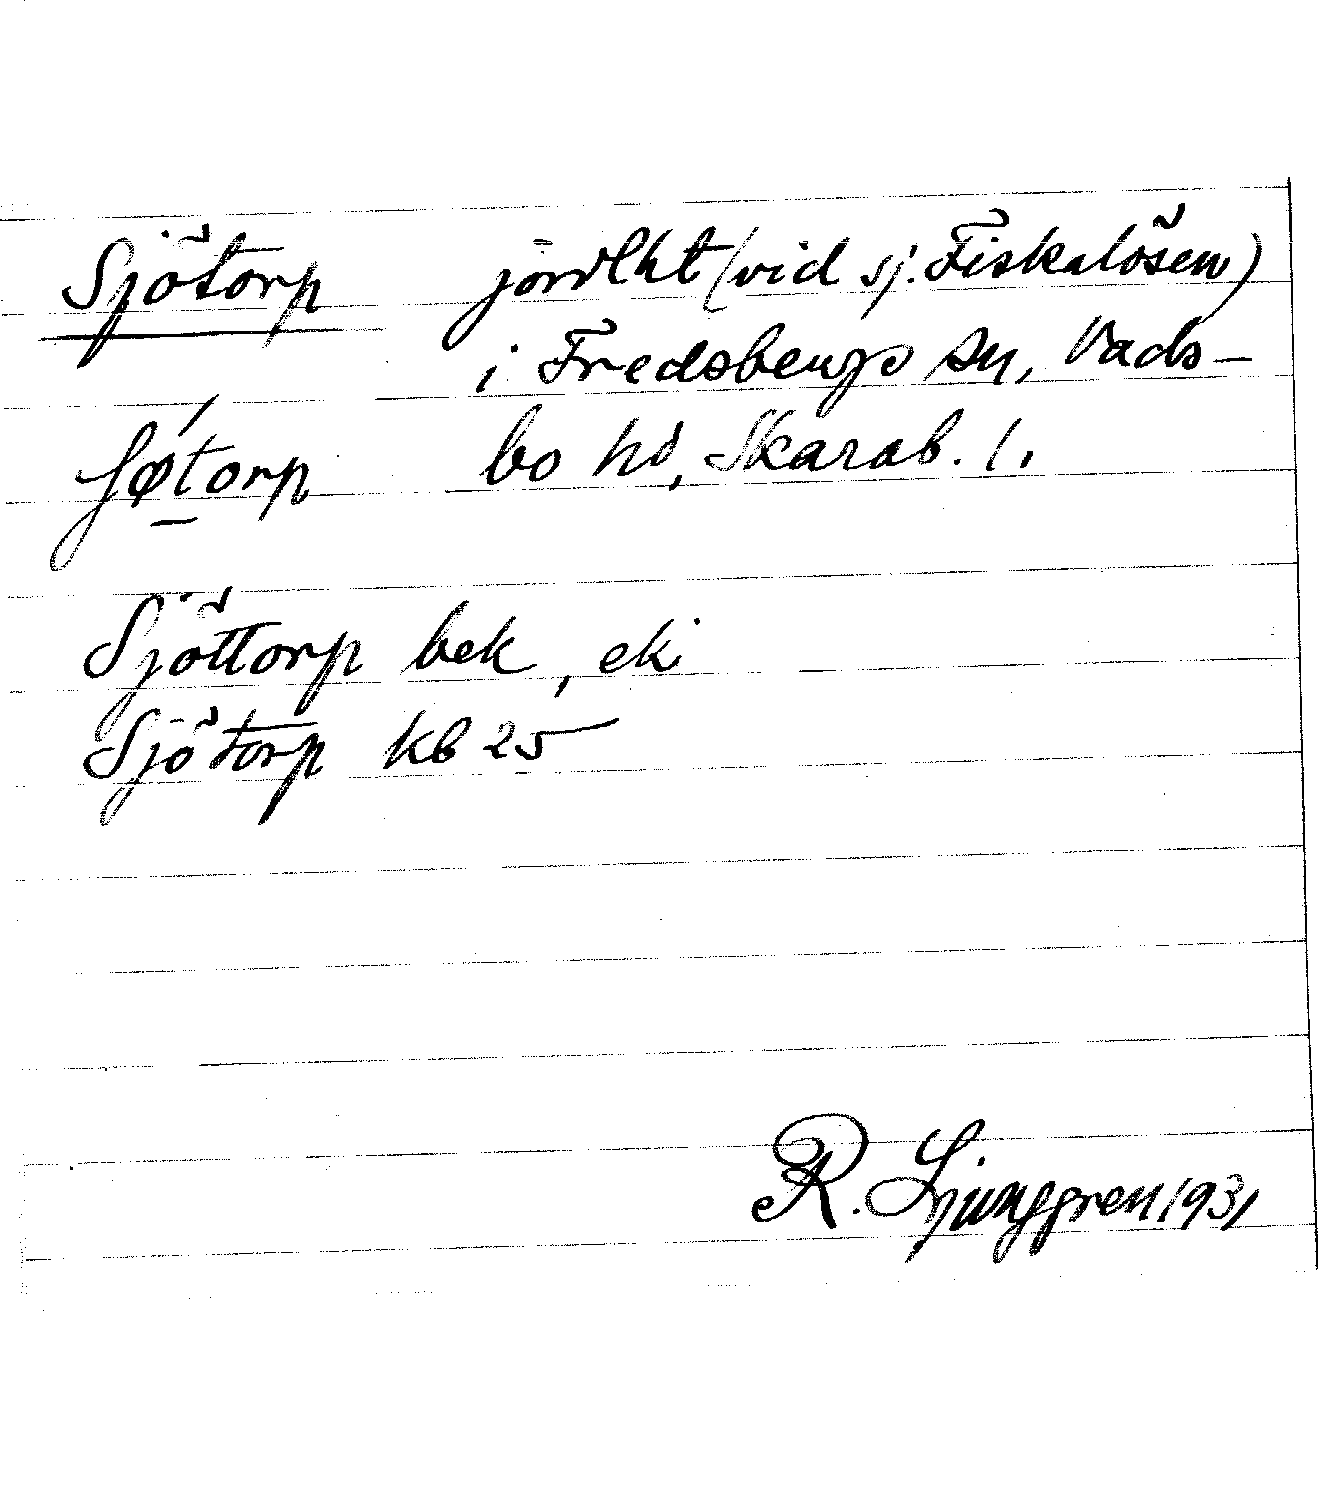 Sjötorp jordlht (vid sj. Fiskalösen)
i Fredsbergs sn, Vads-
ʃǿtorp bo hd, Skarab. l.
Sjöttorp bek, eki
Sjötorp kb 25
R. Ljunggren 1931